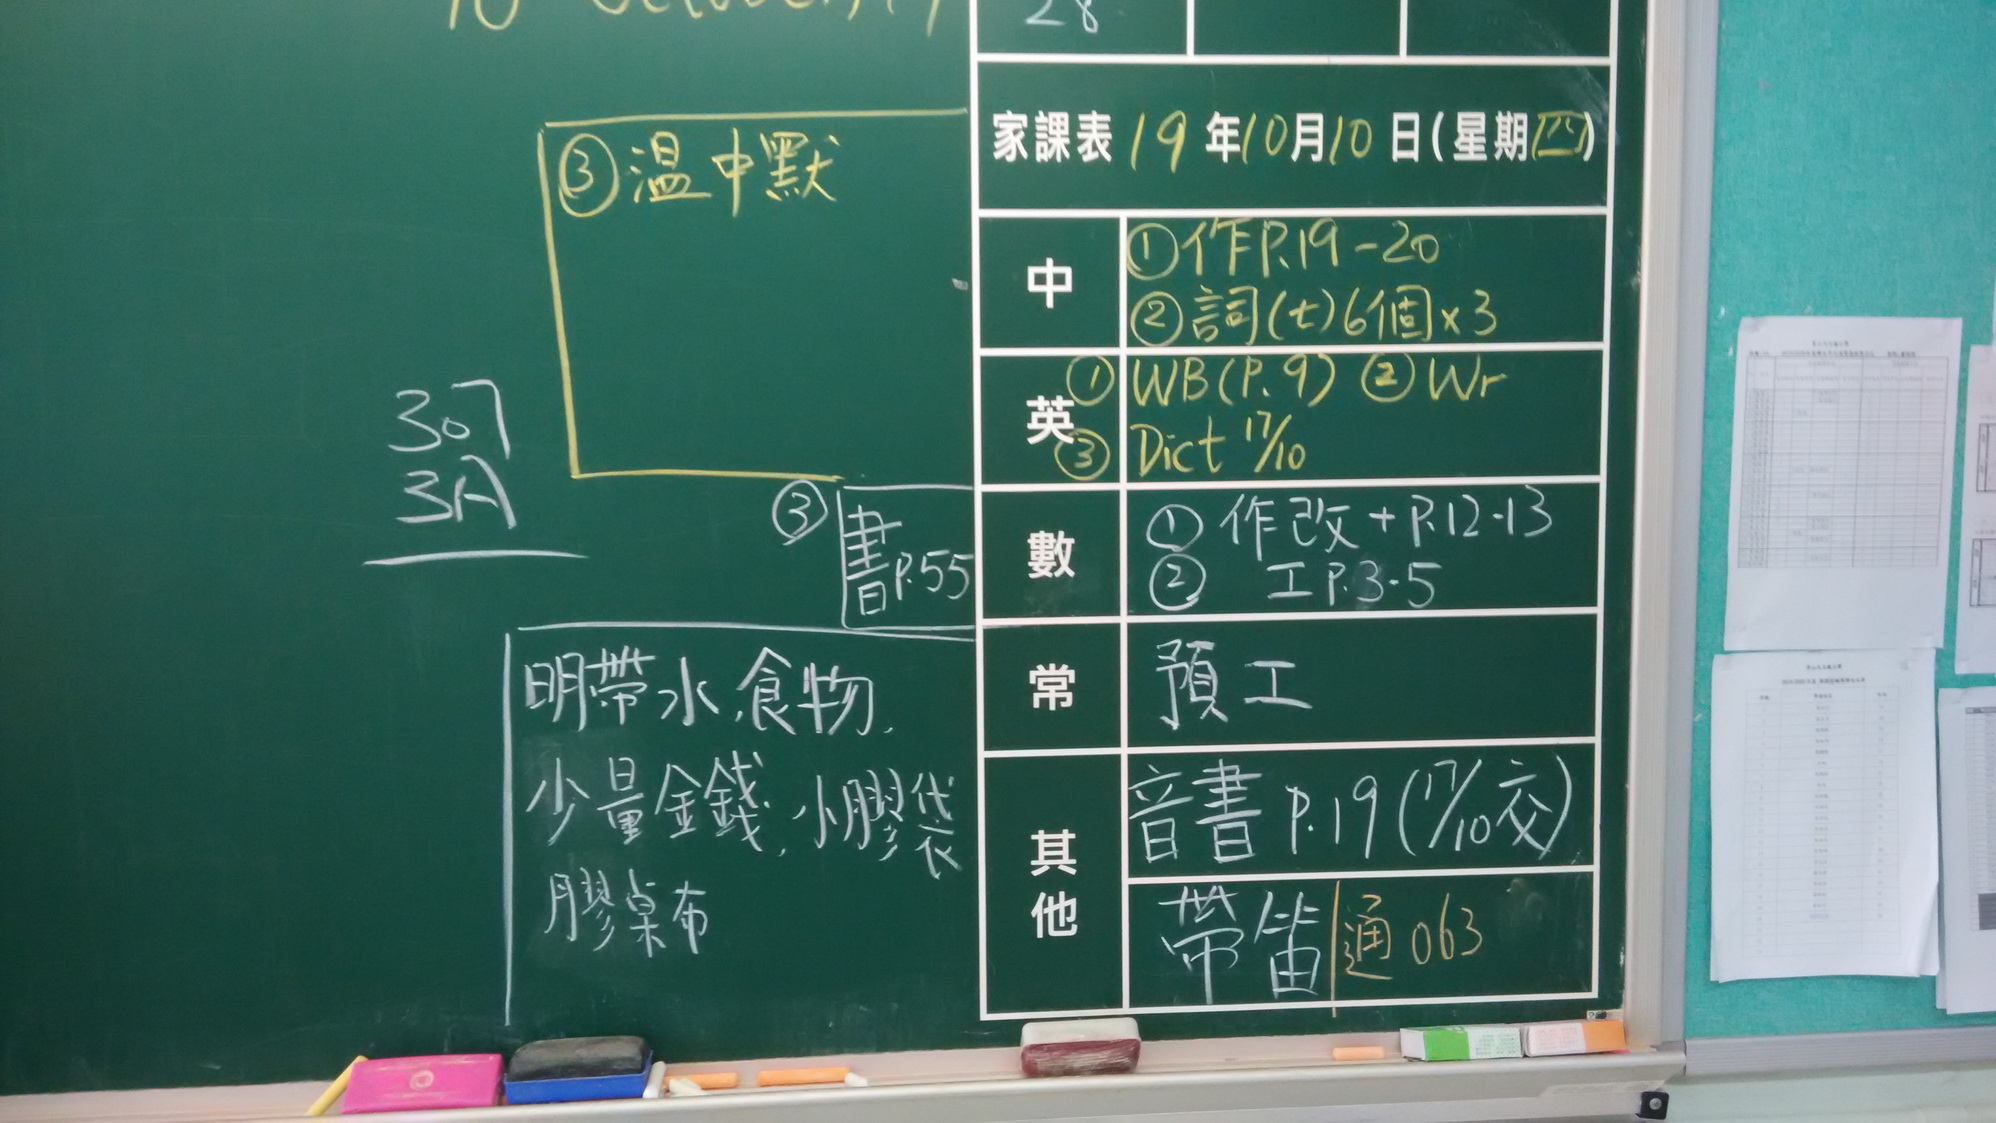 28
家課表 19年10月10日(星期四)
中
①作P.19-20
②詞(七)6個x3
③溫中默
英
①WB(P.9) ②Wr
③Dict 17/10
數
①作改+P.12-13
②工P.3-5
③書P.55
常
預工
其他
音書P.19(17/10交)
帶笛|通063
307
3A
明帶水,食物,
少量金錢,小膠袋
膠桌布